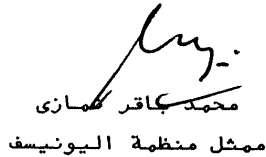 محمد باقر نمازى
ممثل منظمة اليونيسف